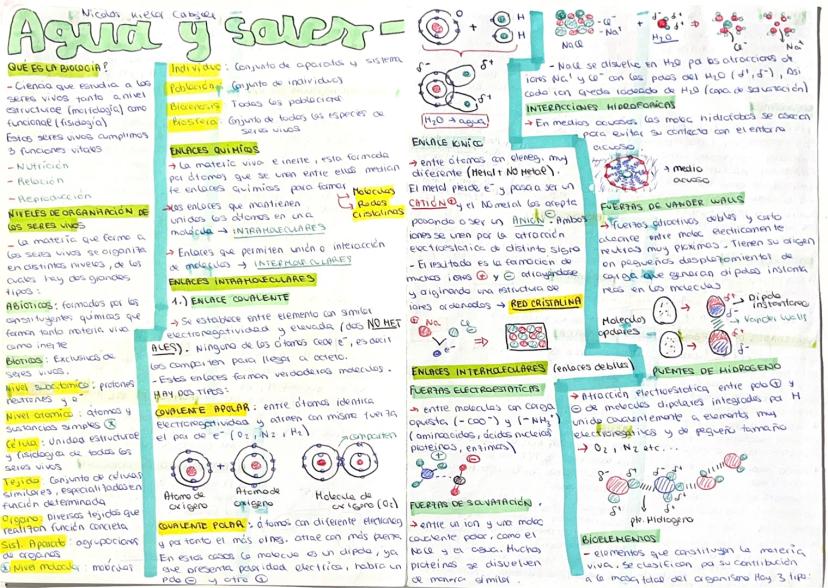 Nicolas
Agua y sales
QUÉ ES LA BIOLOGÍA?
- Ciencia que estudia a los
seres vivos tanto a nivel
estructural (morfología) como
funcional (fisiología)
Estos seres vivos cumplimos
3 funciones vitales
- Nutrición
- Relación
- Reproducción
NIVELES DE ORGANIZACIÓN DE
LOS SERES VIVOS
- La materia que forma a
los seres vivos se organiza
en distintos niveles, de los
cuales hay dos grandes
tipos:
ABIÓTICOS: formados por los
constituyentes químicos que
forman tanto materia viva
como inerte
BIÓTICOS: Exclusivos de
seres vivos.
Nivel subatómico: protones
neutrones y e-
Nivel atómico: átomos y
sustancias simples
Célula: Unidad estructural
y fisiología de todos los
seres vivos
Tejido: Conjunto de células
similares, especializadas en
función determinada
Órgano: Diversos tejidos que
realizan función concreta
Sist. Aparato: agrupaciones
de órganos
Nivel molecul: moléculas
Individuo: Conjunto de aparatos y sistema
Población: Conjunto de individuos
Biocenosis: Todas las poblaciones
Biosfera: Conjunto de todas las especies de
seres vivos
ENLACES QUÍMICOS
→ La materia viva e inerte, esta formada
por átomos que se unen entre ellos median
te enlaces químicos para formar
Moléculas
Redes
cristalinas
→ Los enlaces que mantienen
unidos los átomos en una
molécula → INTRAMOLECULARES
→ Enlaces que permiten unión o interacción
de moléculas → INTERMOLECULARES
ENLACES INTRAMOLECULARES
1.) ENLACE COVALENTE
→ Se establece entre elemento con similar
electronegatividad y elevada (dos NO MET
ALES). Ninguno de los átomos cede e-, es decir
los comparten para llegar a octeto.
- Estos enlaces forman verdaderas moléculas.
HAY DOS TIPOS:
COVALENTE APOLAR: entre átomos identica
Electronegatividad y atraen con misma fuerza
el par de e- (O2, N2, H2)
comparten
Átomo de
oxígeno
Átomo de
oxígeno
Molécula de
oxígeno (O2)
COVALENTE POLAR: átomos con diferente electroneg
y por tanto el más elneg. atrae con más fuerza
En estos casos la molécula es un dipolo, ya
que presenta polaridad electrica, habrá un
polo ⊖ y otro ⊕
O + H H
δ- δ+ δ+
H2O → agua
ENLACE IONICO
→ entre átomos con eleneg. muy
diferente (Metal + NO Metal).
El metal pierde e- y pasa a ser un
CATIÓN ⊕ y el NO metal los acepta
pasando a ser un ANIÓN ⊖. Ambos
iones se unen por la atracción
electroestática de distinto signo
- El resultado es la formación de
muchos iones ⊕ y ⊖ atrayéndose
y originando una estructura de
iones ordenados → RED CRISTALINA
Na Cl
e-
ENLACES INTERMOLECULARES (enlaces debiles)
FUERZAS ELECTROESTATICAS
→ entre moleculas con carga
opuesta (-COO-) y (-NH3+)
(aminoácidos, ácidos nucleicos
proteínas, enzimas)
FUERZAS DE SOLVATACIÓN.
→ entre un ion y una molec
covalente polar, como el
NaCl y el agua. Muchas
proteínas se disuelven
de manera similar.
NaCl
Cl-
Na+
H2O
Cl-
Na+
- NaCl se disuelve en H2O por las atracciones de
iones Na+ y Cl- con los polos del H2O (δ+, δ-), Asi
cada ion queda rodeado de H2O (capa de solvatación)
INTERACCIONES HIDROFOBICAS
→ En medios acuosos, las molec hidrofobas se asocian
para evitar su contacto con el entorno
acuoso.
→ medio
acuoso
FUERZAS DE VANDER WALLS
→ Fuerzas atractivas debiles y corto
alcance entre molec electricamente
neutras muy proximas. Tienen su origen
en pequeños desplazamientos de
carga que generan dipolos instanta
neos en las moleculas
Moleculas
apolares
Dipolo
instantaneo
Vander Walls
PUENTES DE HIDROGENO
→ Atracción electroestatica entre polo ⊕ y
⊖ de moleculas dipolares integradas por H
unido covalentemente a elementos muy
electronegativos y de pequeño tamaño
→ O2, N2 etc...
pte. Hidrogeno
BIOELEMENTOS
- elementos que constituyen la materia
viva, se clasifican por su contribución
a la masa total del organismo. Hay 3 tipo: